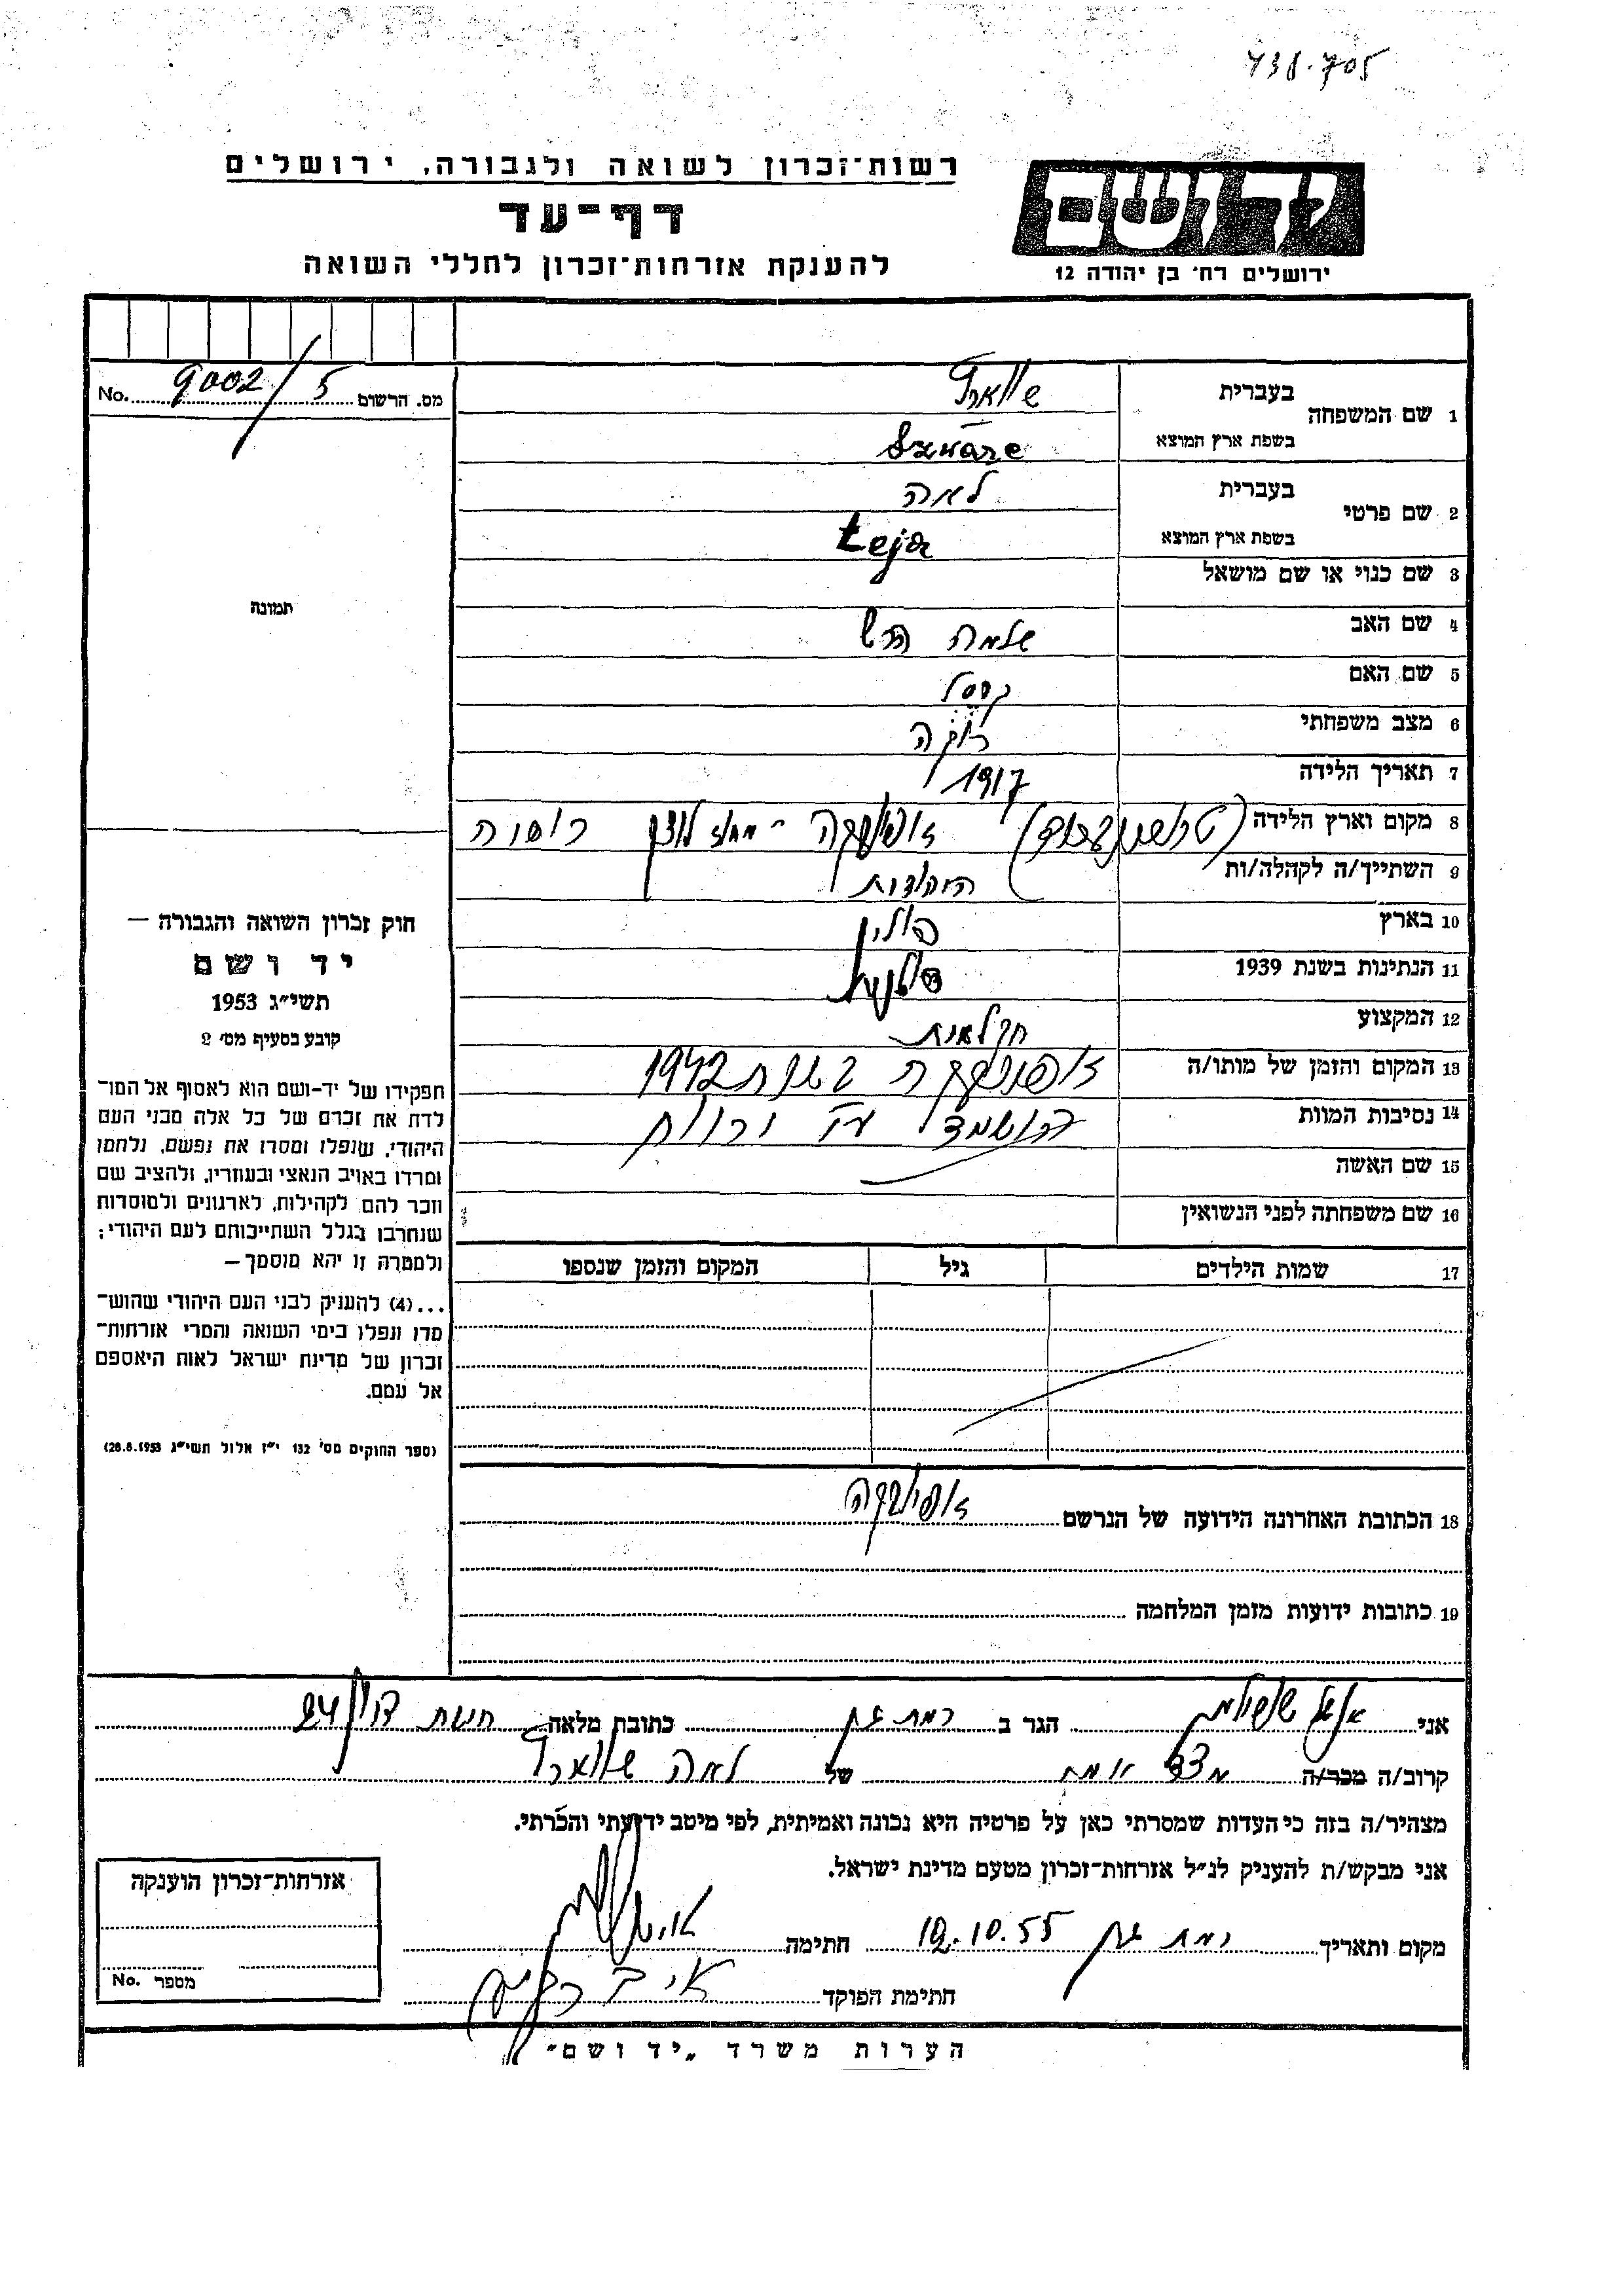 438.705
רשות־זכרון לשואה ולגבורה, ירושלים
דף־עד
להענקת אזרחות־זכרון לחללי השואה
יד ושם
ירושלים רח׳ בן יהודה 12
מס. הרשום 9002/5 No.
1 שם המשפחה
בעברית שווארץ
בשפת ארץ המוצא Szwarc
2 שם פרטי
בעברית לאה
בשפת ארץ המוצא Łeja
3 שם כנוי או שם מושאל
4 שם האב שלמה הרש
5 שם האם
6 מצב משפחתי רוקה
7 תאריך הלידה 1917
8 מקום וארץ הלידה זופיובקה - מחוז לוצק רוסיה
9 השתייך/ה לקהלה/ות היהודית
10 בארץ פולין
11 הנתינות בשנת 1939 פולנית
12 המקצוע חקלאית
13 המקום והזמן של מותו/ה זופיובקה בשנת 1942
14 נסיבות המוות
15 שם האשה
16 שם משפחתה לפני הנשואין
17 שמות הילדים גיל המקום והזמן שנספו
18 הכתובת האחרונה הידועה של הנרשם זופיובקה
19 כתובות ידועות מזמן המלחמה
תמונה
חוק זכרון השואה והגבורה —
יד ושם
תשי״ג 1953
קובע בסעיף מס׳ 2
תפקידו של יד-ושם הוא לאסוף אל המו־
לדת את זכרם של כל אלה מבני העם
היהודי, שנפלו ומסרו את נפשם, נלחמו
ומרדו באויב הנאצי ובעוזריו, ולהציב שם
וזכר להם, לקהילות, לארגונים ולמוסדות
שנחרבו בגלל השתייכותם לעם היהודי;
ולמטרה זו יהא מוסמך —
...(4) להעניק לבני העם היהודי שהוש־
מדו ונפלו בימי השואה והמרי אזרחות־
זכרון של מדינת ישראל לאות היאספם
אל עמם.
(ספר החוקים מס׳ 132 י״ז אלול תשי״ג 28.8.1953)
אני הגר ב רמת גן כתובת מלאה 24
קרוב/ה מכר/ה מצד אמה של לאה שווארץ
מצהיר/ה בזה כי העדות שמסרתי כאן על פרטיה היא נכונה ואמיתית, לפי מיטב ידיעתי והכרתי.
אני מבקש/ת להעניק לנ״ל אזרחות־זכרון מטעם מדינת ישראל.
מקום ותאריך רמת גן 12.10.55 חתימה
חתימת הפוקד
אזרחות־זכרון הוענקה
מספר No.
הערות משרד „יד ושם״